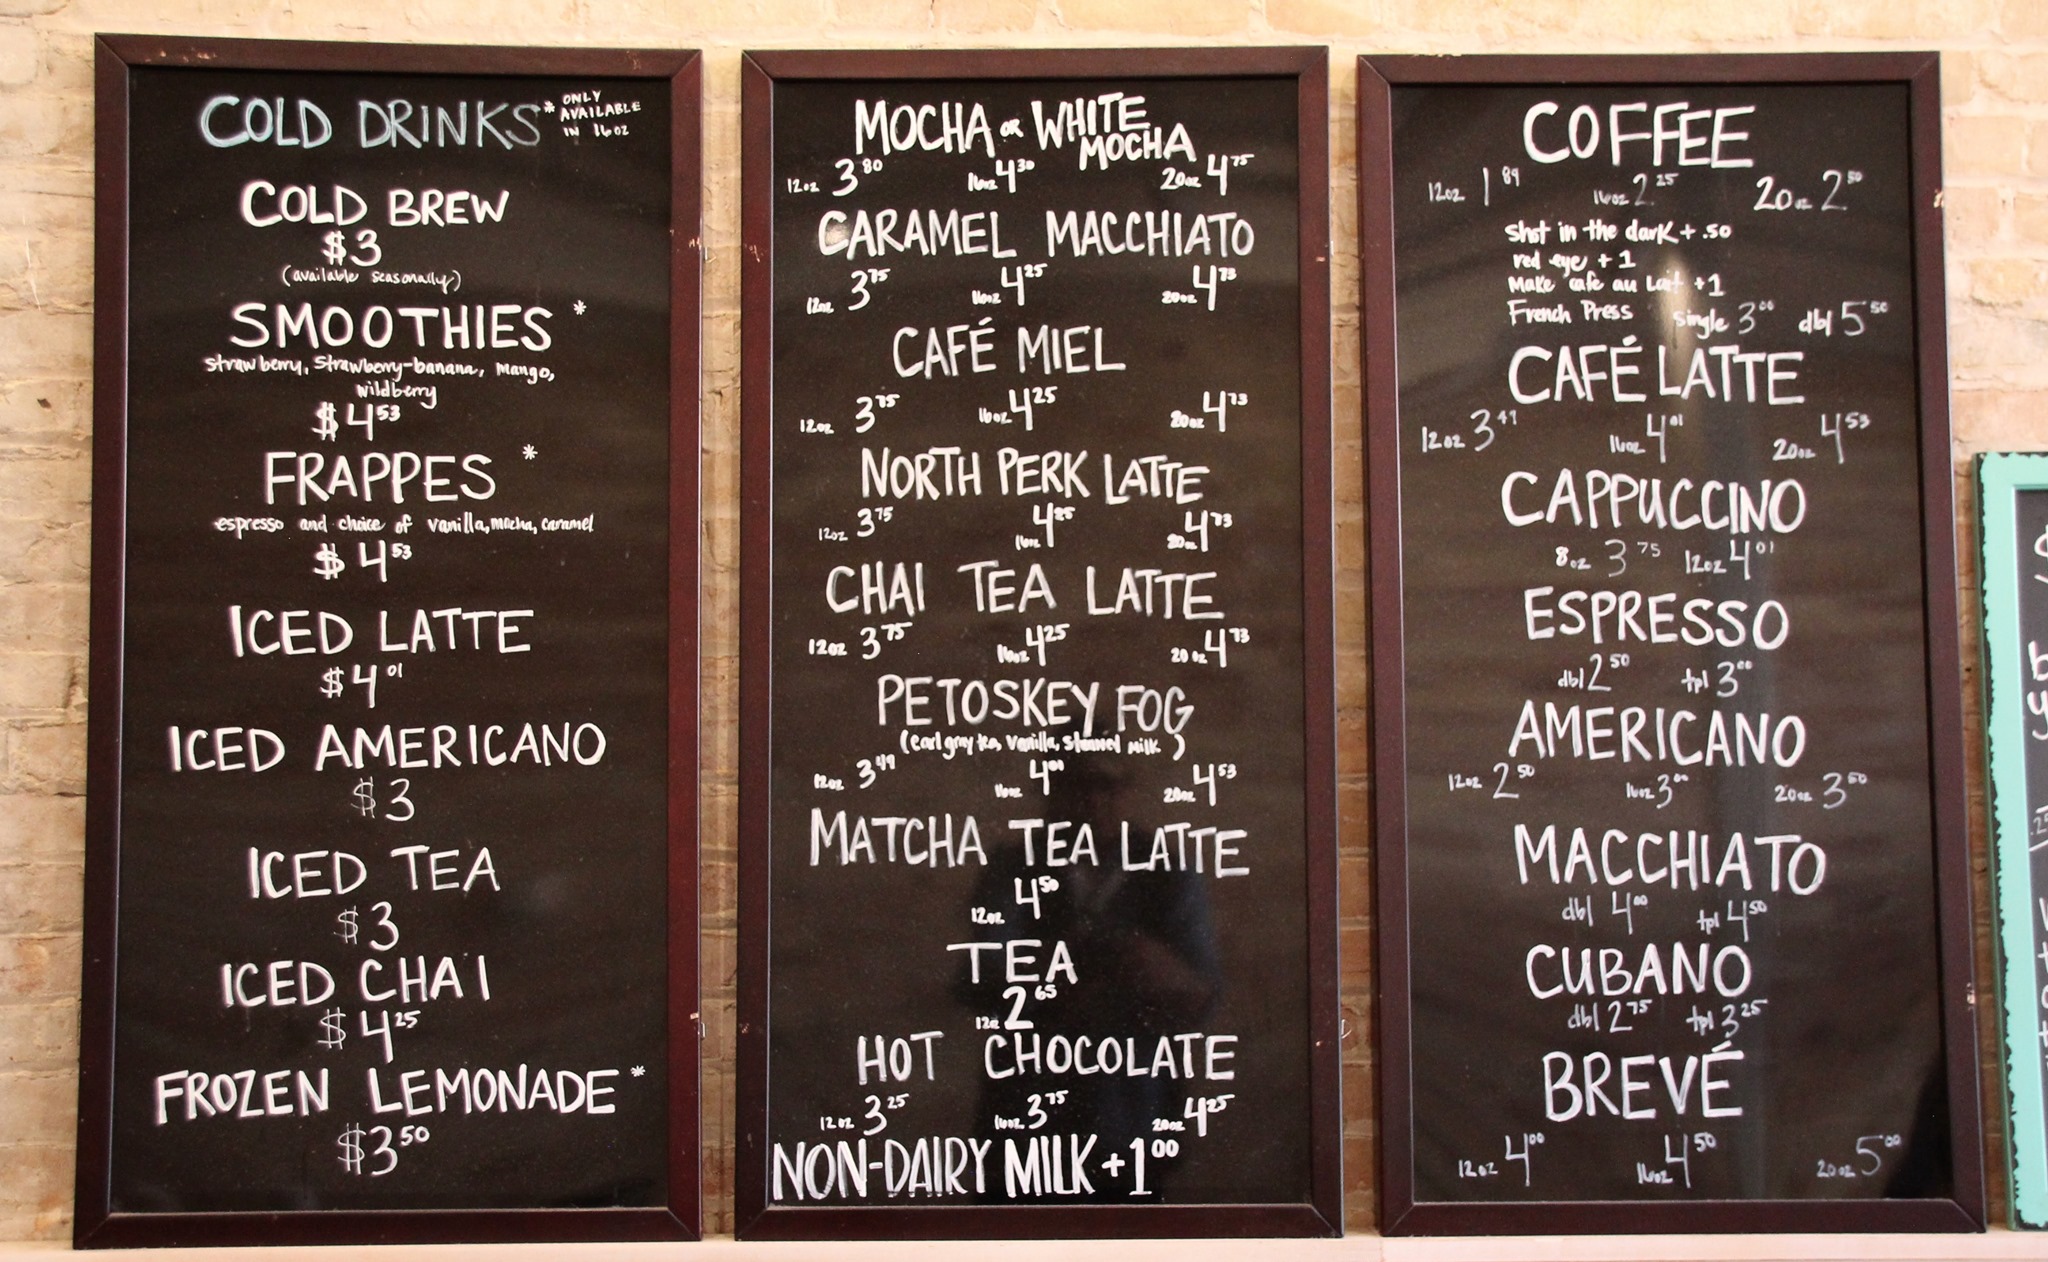 COLD DRINKS * ONLY
AVAILABLE
IN 16oz
COLD BREW
$3
(available seasonally)
SMOOTHIES *
strawberry, strawberry-banana, mango,
wildberry
$4.53
FRAPPES *
espresso and choice of vanilla, mocha, caramel
$4.53
ICED LATTE
$4.01
ICED AMERICANO
$3
ICED TEA
$3
ICED CHAI
$4.25
FROZEN LEMONADE *
$3.50
MOCHA OR WHITE
MOCHA
12oz 3.80 16oz 4.30 20oz 4.75
CARAMEL MACCHIATO
12oz 3.75 16oz 4.25 20oz 4.73
CAFÉ MIEL
12oz 3.75 16oz 4.25 20oz 4.73
NORTH PERK LATTE
12oz 3.75 16oz 4.25 20oz 4.73
CHAI TEA LATTE
12oz 3.75 16oz 4.25 20oz 4.73
PETOSKEY FOG
(earl gray tea, vanilla, steamed milk)
12oz 3.49 16oz 4.00 20oz 4.53
MATCHA TEA LATTE
12oz 4.50
TEA
12oz 2.65
HOT CHOCOLATE
12oz 3.25 16oz 3.75 20oz 4.25
NON-DAIRY MILK +1.00
COFFEE
12oz 1.89 16oz 2.25 20oz 2.50
shot in the dark + .50
red eye + 1
Make cafe au Lait +1
French Press single 3.00 dbl 5.50
CAFÉ LATTE
12oz 3.49 16oz 4.01 20oz 4.53
CAPPUCCINO
8oz 3.75 12oz 4.01
ESPRESSO
dbl 2.50 tpl 3.00
AMERICANO
12oz 2.50 16oz 3.00 20oz 3.50
MACCHIATO
dbl 4.00 tpl 4.50
CUBANO
dbl 2.75 tpl 3.25
BREVÉ
12oz 4.00 16oz 4.50 20oz 5.00